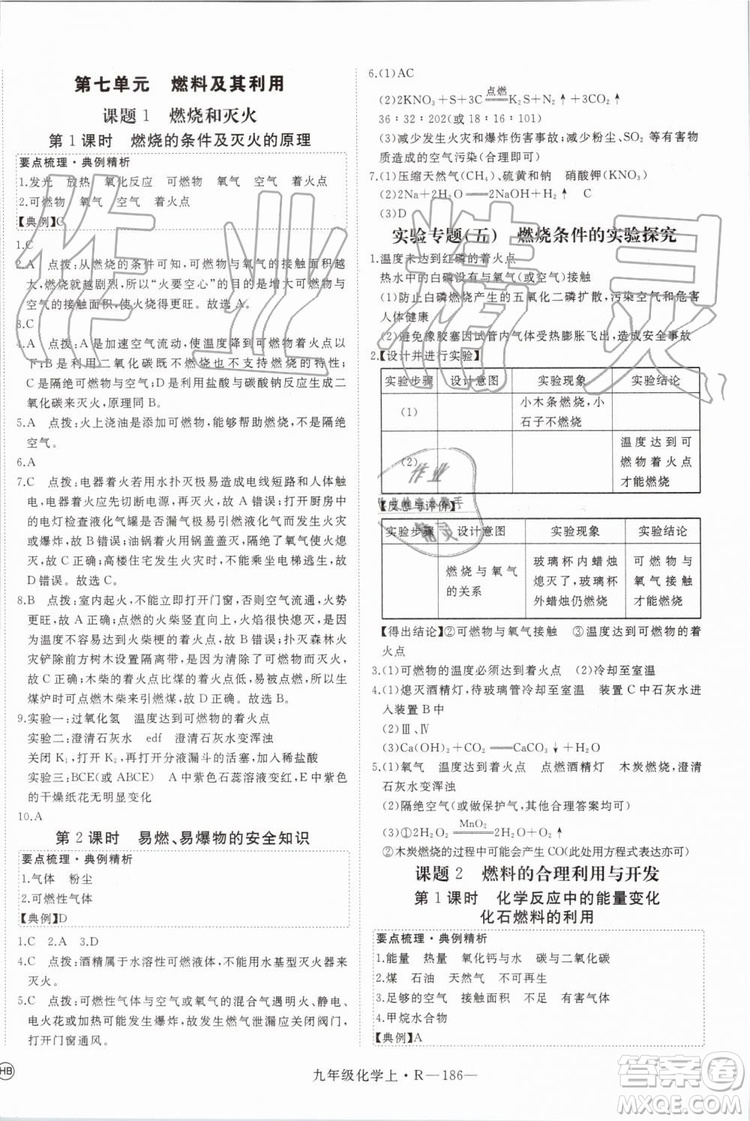 第七单元 燃料及其利用
课题1 燃烧和灭火
第1课时 燃烧的条件及灭火的原理
要点梳理·典例精析
1.发光 放热 氧化反应 可燃物 氧气 空气 着火点
2.可燃物 氧气 空气 着火点
【典例】C
1.C
2.A 点拨：从燃烧的条件可知，可燃物与氧气的接触面积越
大，燃烧就越剧烈，所以“火要空心”的意思是增大可燃物与
氧气的接触面积，使燃烧更旺。故选A。
3.C
4.C 点拨：A是加速空气流动，使温度降到可燃物着火点以
下；B是利用二氧化碳不燃烧、不支持燃烧的特性；
C是隔绝空气；D是利用盐酸与碳酸钠反应生成的二
氧化碳来灭火，原理不同。故选C。
5.A 点拨：火上浇油是添加可燃物，能够帮助燃烧，不是隔绝
空气。
6.A
7.C 点拨：电器着火若用水扑灭极易造成电线短路和人体触
电，引发更大的火灾和人员伤亡，故A错误；打开厨房中
的电灯检查液化气罐是否漏气极易引发火灾或爆炸，
故B错误；油锅着火用锅盖盖灭，可以隔绝空气，达到灭火
目的，故C正确；高层着火时，不能乘坐电梯逃生，故D错
误。故选C。
8.B 点拨：室内起火，不可立即打开门窗，否则空气流通，火势
更旺，故A错误；点燃的火柴竖直向上，火焰很快变小，
火柴梗温度低于着火点，故B正确；扑灭森林火
灾铲除前方树木设置隔离带，是清除可燃物，故C错误；用
煤炉生火时点燃木柴引燃煤，是为了使煤达到着火点，故D
错误。故选B。
9.实验一：过氧化氢 温度达到可燃物的着火点
实验二：澄清石灰水 edf 澄清石灰水变浑浊
关闭K₁，打开K₂，再从长颈漏斗的上口，加入稀盐酸
实验三：BCE(或ABCE) A中紫色石蕊溶液变红，E中紫色
的干燥纸花变成红色
10.A
第2课时 易燃、易爆物的安全知识
要点梳理·典例精析
1.气体 粉尘
2.可燃性气体
【典例】D
1.C 2.A 3.D
4.C 点拨：酒精属于水溶性可燃液体，不能用水基型灭火器来
灭火。
5.C 点拨：可燃性气体与空气或氧气的混合气遇明火、静电、
电火花有可能爆炸，故可燃性气体泄漏应关闭阀门，
打开门窗通风。
6.(1)AC
(2)2KNO₃+S+3C 点燃 K₂S+N₂↑+3CO₂↑
36∶32∶202(或18∶16∶101)
(3)减少发生火灾和爆炸伤害事故；减少粉尘、SO₂等有害物
质造成的空气污染(合理即可)
7.(1)压缩天然气(CH₄)、硫黄和红磷、硝酸钾(KNO₃)
(2)2Na+2H₂O═2NaOH+H₂↑
(3)D
实验专题(五) 燃烧条件的实验探究
1.温度未达到红磷的着火点
热水中的白磷没有与氧气(或空气)接触
(1)防止白磷燃烧产生的五氧化二磷扩散，污染空气和危害
人体健康
(2)避免橡胶塞因试管内气体受热膨胀飞出，造成安全事故
2.【设计并进行实验】
实验步骤 设计意图 实验现象 实验结论
(1) 小木条燃烧，小石子不燃烧
(2) 温度达到可燃物的着火点才能燃烧
【反思与评价】
实验步骤 设计意图 实验现象 实验结论
燃烧与氧气的关系 玻璃杯内蜡烛熄灭了，玻璃杯外蜡烛仍燃烧 可燃物与氧气接触才能燃烧
【得出结论】②可燃物与氧气接触 ③温度达到可燃物的着
火点
3.(1)可燃物的温度达到着火点 (2)冷却至室温
4.(1)熄灭酒精灯，待玻璃管冷却至室温 C中石灰水进入
装置B中
(2)Ⅲ、Ⅳ
(3)Ca(OH)₂+CO₂═CaCO₃↓+H₂O
5.(1)氧气 温度达到着火点 点燃酒精灯 木炭燃烧，澄清
石灰水变浑浊
(2)隔绝空气(或氧气)
(3)①2H₂O₂ MnO₂ 2H₂O+O₂↑
②木炭燃烧的过程中可能会产生CO(此处用方程式表达亦可)
课题2 燃料的合理利用与开发
第1课时 化学反应中的能量变化
化石燃料的利用
要点梳理·典例精析
1.能量 热量 氧化钙与水 碳与二氧化碳
2.煤 石油 天然气 不可再生
3.足够的空气 足够大的接触面积
4.甲烷水合物
【典例】A
九年级化学上·R—186—
HB
作业精灵
答案圈